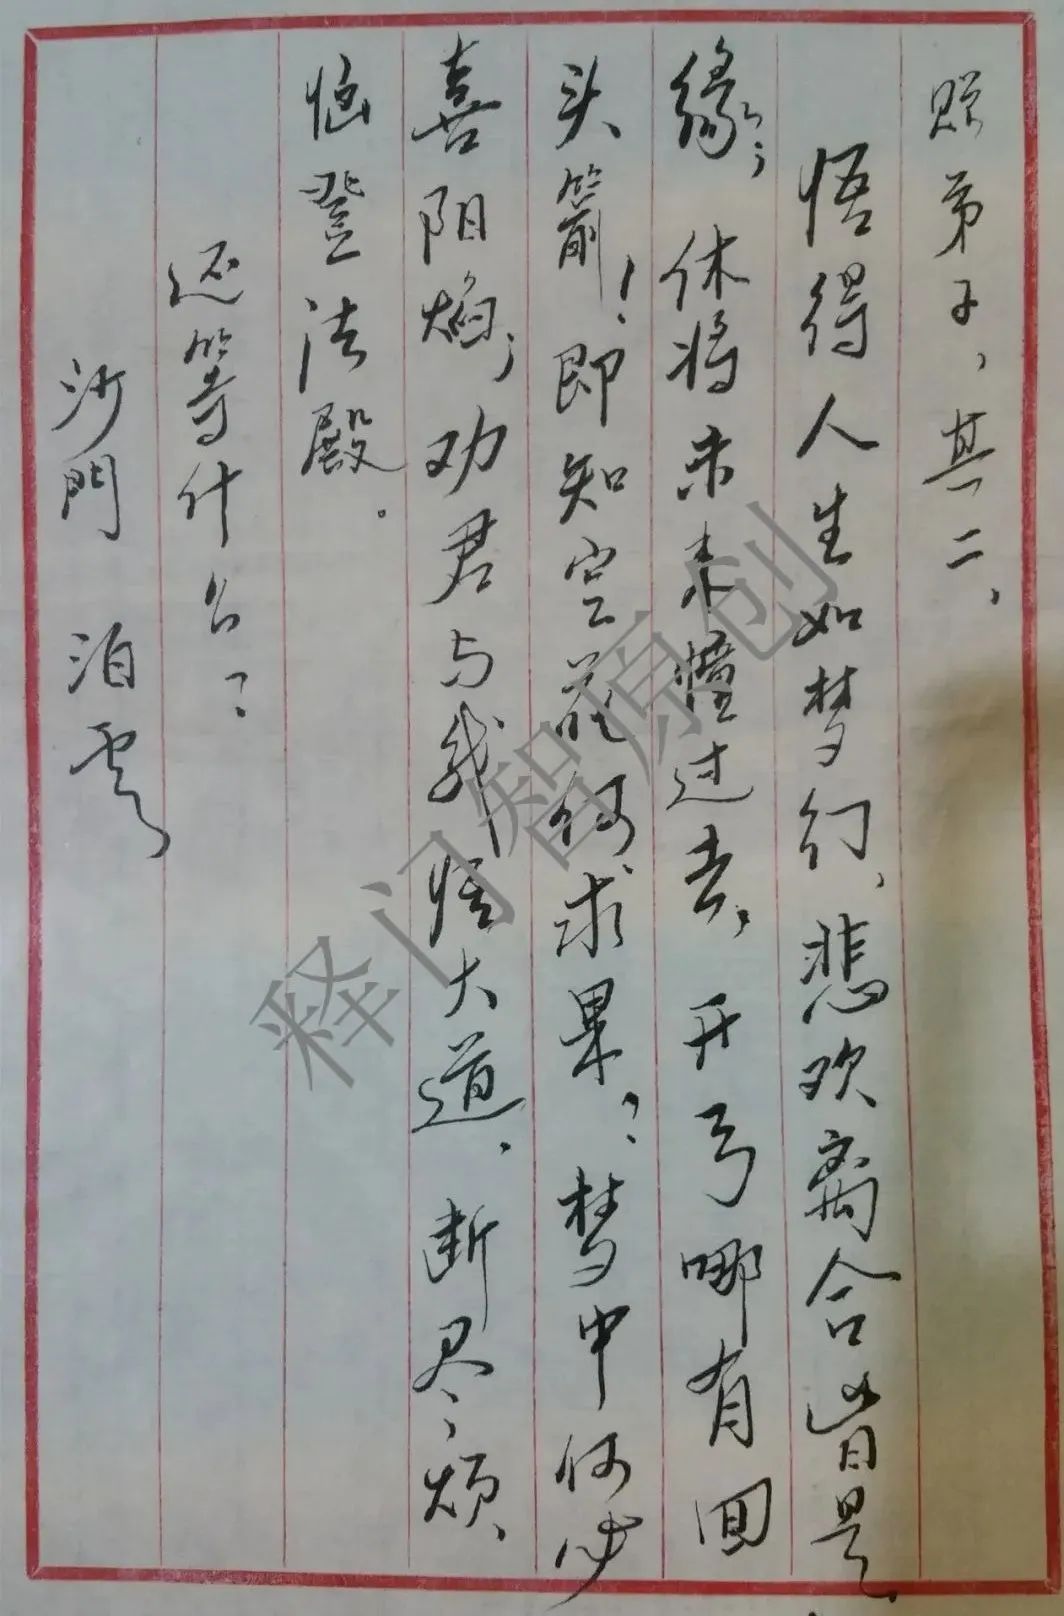 赠弟子、其二、
悟得人生如梦幻、悲欢离合皆是
缘；休将未来憧过去，开弓哪有回
头箭！即知空花何求果？梦中何必
喜阳焰；劝君与我悟大道、断尽烦
恼登法殿。
还等什么？
沙門 泊雲
释门智原创